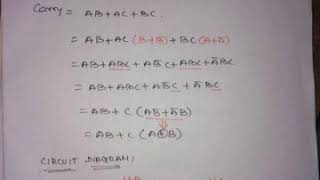 Carry = AB + AC + BC.
= AB + AC (B + B̄) + BC (A + Ā)
= AB + ABC + AB̄C + ABC + ĀBC
= AB + ABC + AB̄C + ĀBC
= AB + C (AB̄ + ĀB)
= AB + C (A⊕B)
CIRCUIT DIAGRAM: